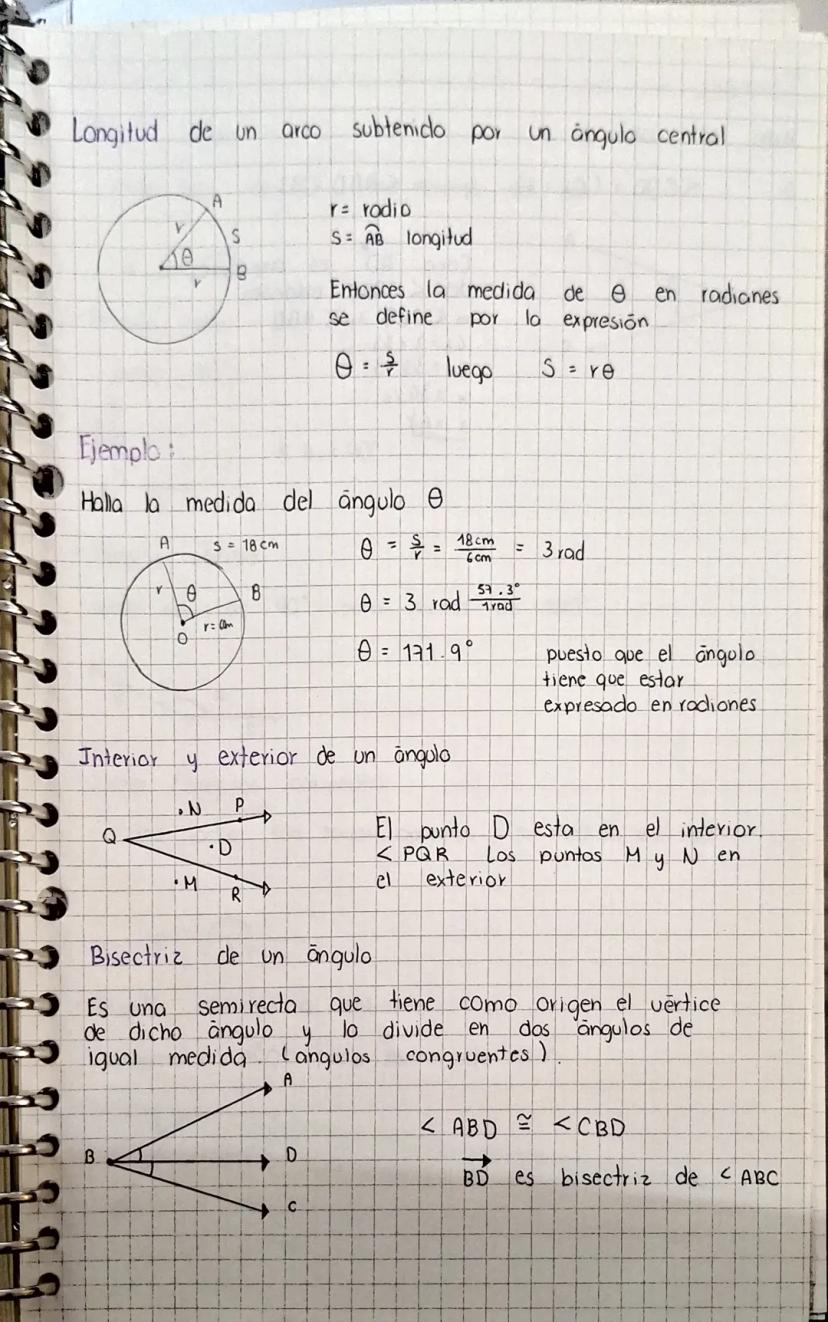 Longitud de un arco subtenido por un ángulo central
A
r
S
θ
B
r
r = radio
S = AB longitud
Entonces la medida de θ en radianes
se define por la expresión
θ = s/r luego S = rθ
Ejemplo:
Halla la medida del ángulo θ
A
S = 18 cm
r
θ
B
O
θ = s/r = 18cm/6cm = 3 rad
θ = 3 rad 57.3°/1rad
θ = 171.9°
puesto que el ángulo
tiene que estar
expresado en radianes
Interior y exterior de un ángulo
.N
P
Q
.D
.M
R
El punto D esta en el interior.
< PQR Los puntos M y N en
el exterior
Bisectriz de un ángulo
Es una semirecta que tiene como origen el vértice
de dicho ángulo y lo divide en dos ángulos de
igual medida. (angulos congruentes).
A
B
D
C
< ABD ≅ < CBD
BD es bisectriz de < ABC